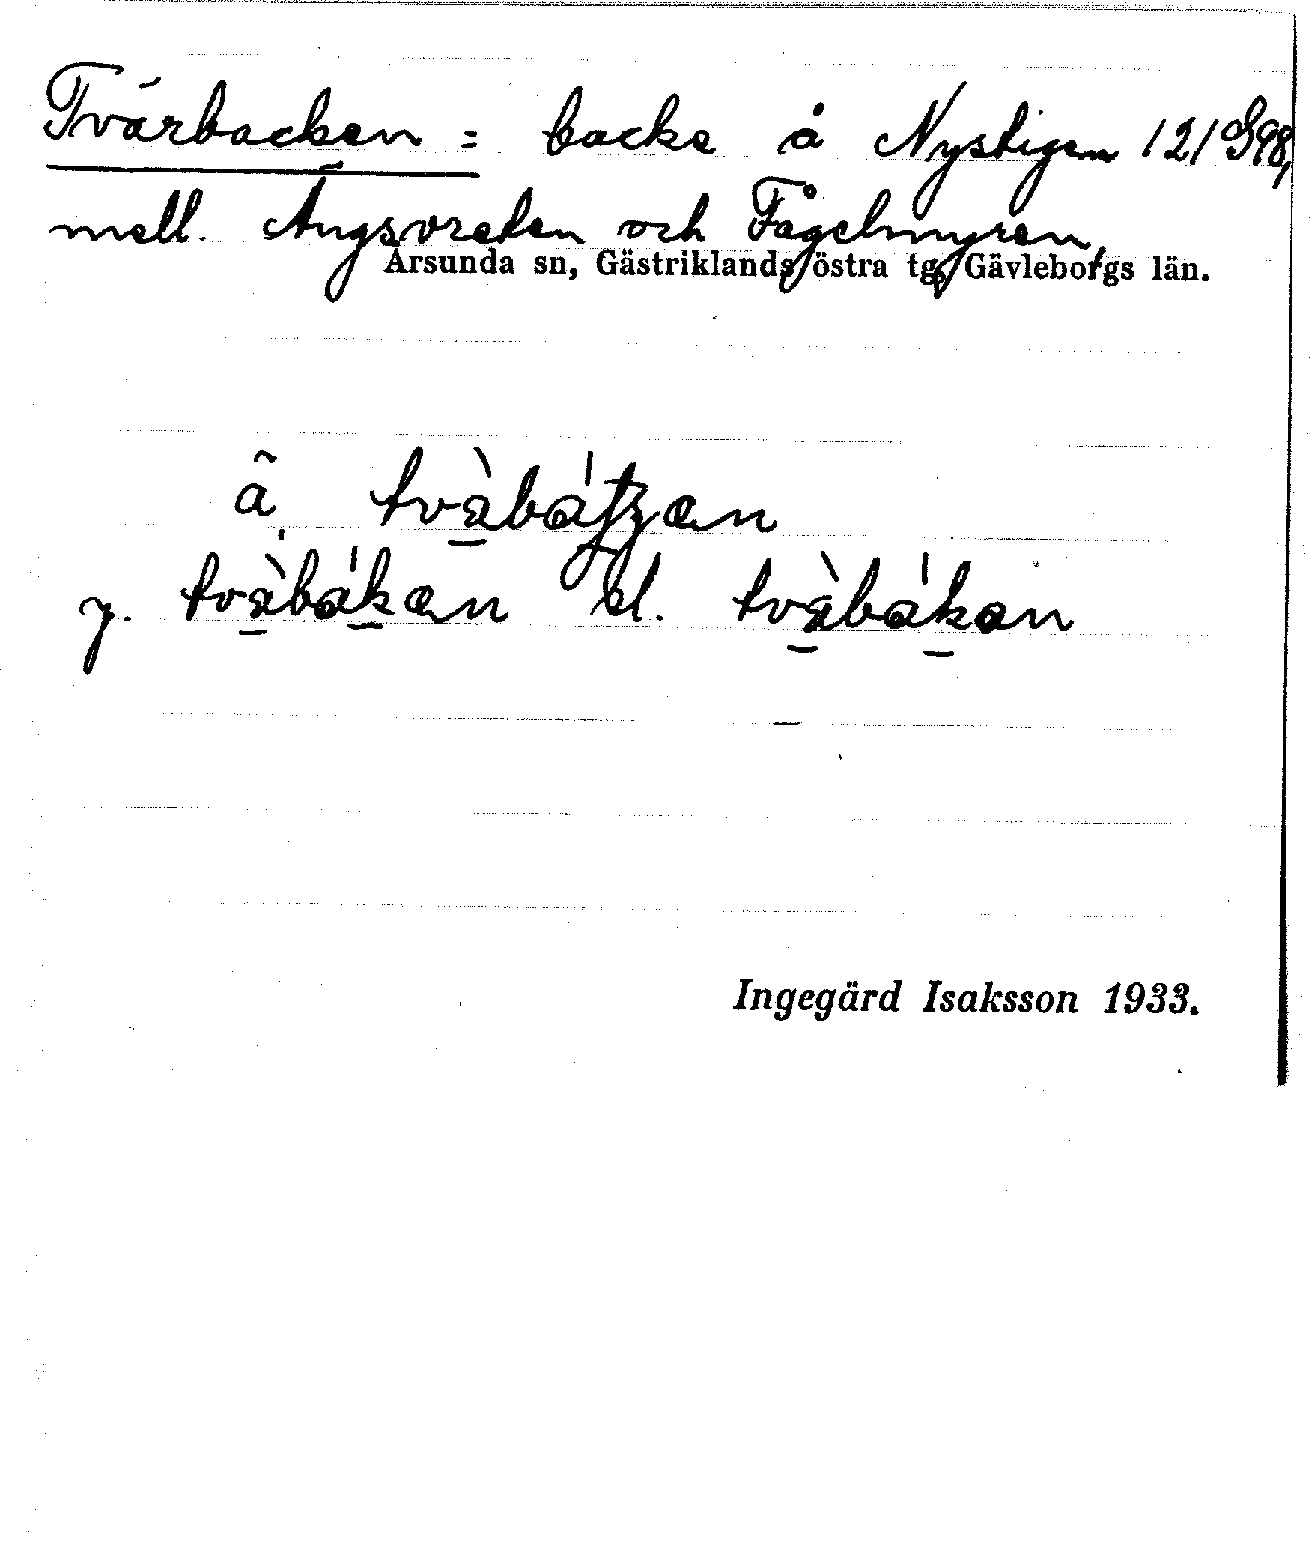 Tvärbacken = backe å Nystigen /2/ S98,
mell. Ängsvreten och Fågelmyren,
Årsunda sn, Gästriklands östra tg, Gävleborgs län.
y. el.
Ingegärd Isaksson 1933.